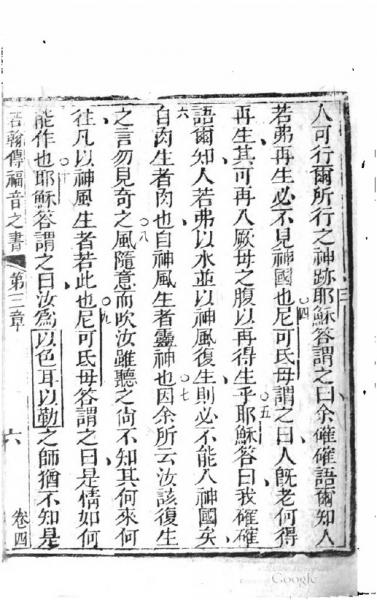 人可行爾所行之神跡耶穌答謂之曰余確確語爾知人
若弗再生必不見神國也尼可氐毋謂之曰人旣老何得
再生其可再入厥母之腹以再得生乎耶穌答曰我確確
語爾知人若弗以水並以神風復生則必不能入神國矣
自肉生者肉也自神風生者靈神也因余所云汝該復生
之言勿見奇之風隨意而吹汝雖聽之尙不知其何來何
往凡以神風生者若此也尼可氐毋答謂之曰是情如何
能作也耶穌答謂之曰汝為以色耳以勒之師猶不知是
若翰傳福音之書 第三章 六 卷四
三
四
五
六
七
八
九
十
Google